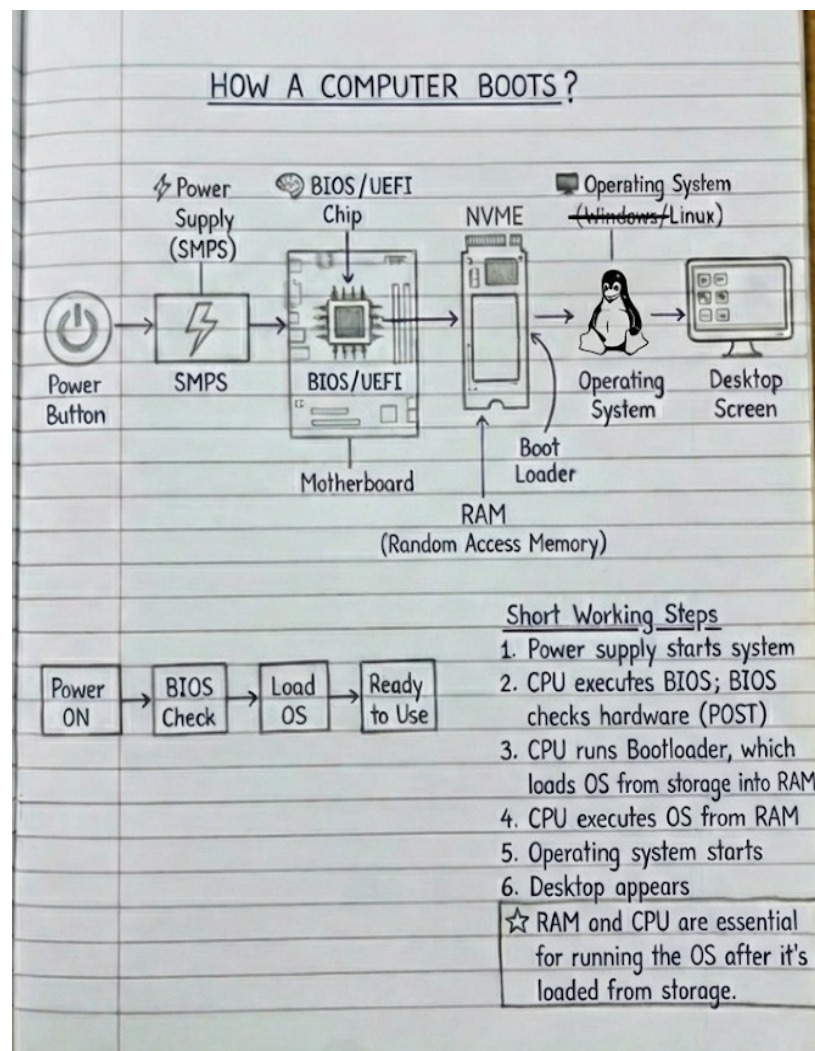 HOW A COMPUTER BOOTS?
Power
Supply
(SMPS)
BIOS/UEFI
Chip
NVME
Operating System
(Windows/Linux)
Power
Button
SMPS
BIOS/UEFI
Motherboard
Operating
System
Desktop
Screen
Boot
Loader
RAM
(Random Access Memory)
Power
ON
BIOS
Check
Load
OS
Ready
to Use
Short Working Steps
1. Power supply starts system
2. CPU executes BIOS; BIOS
checks hardware (POST)
3. CPU runs Bootloader, which
loads OS from storage into RAM
4. CPU executes OS from RAM
5. Operating system starts
6. Desktop appears
☆ RAM and CPU are essential
for running the OS after it's
loaded from storage.